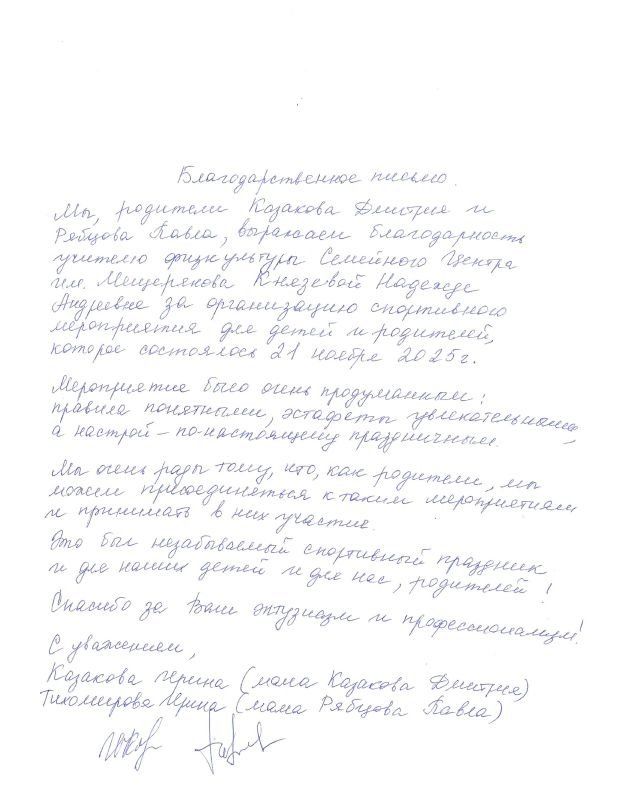 Благодарственное письмо.
Мы, родители Казакова Дмитрия и
Рябцова Павла, выражаем благодарность
учителю физкультуры Семейного Центра
им. Мещерякова Князевой Надежде
Андреевне за организацию спортивного
мероприятия для детей и родителей,
которое состоялось 21 ноября 2025г.
Мероприятие было очень продуманным:
правила понятными, эстафеты увлекательными,
а настрой – по-настоящему праздничным.
Мы очень рады тому, что, как родители, мы
можем присоединяться к таким мероприятиям
и принимать в них участие.
Это был незабываемый спортивный праздник
и для наших детей и для нас, родителей!
Спасибо за Ваш энтузиазм и профессионализм!
С уважением,
Казакова Ирина (мама Казакова Дмитрия)
Тихомирова Ирина (мама Рябцова Павла)